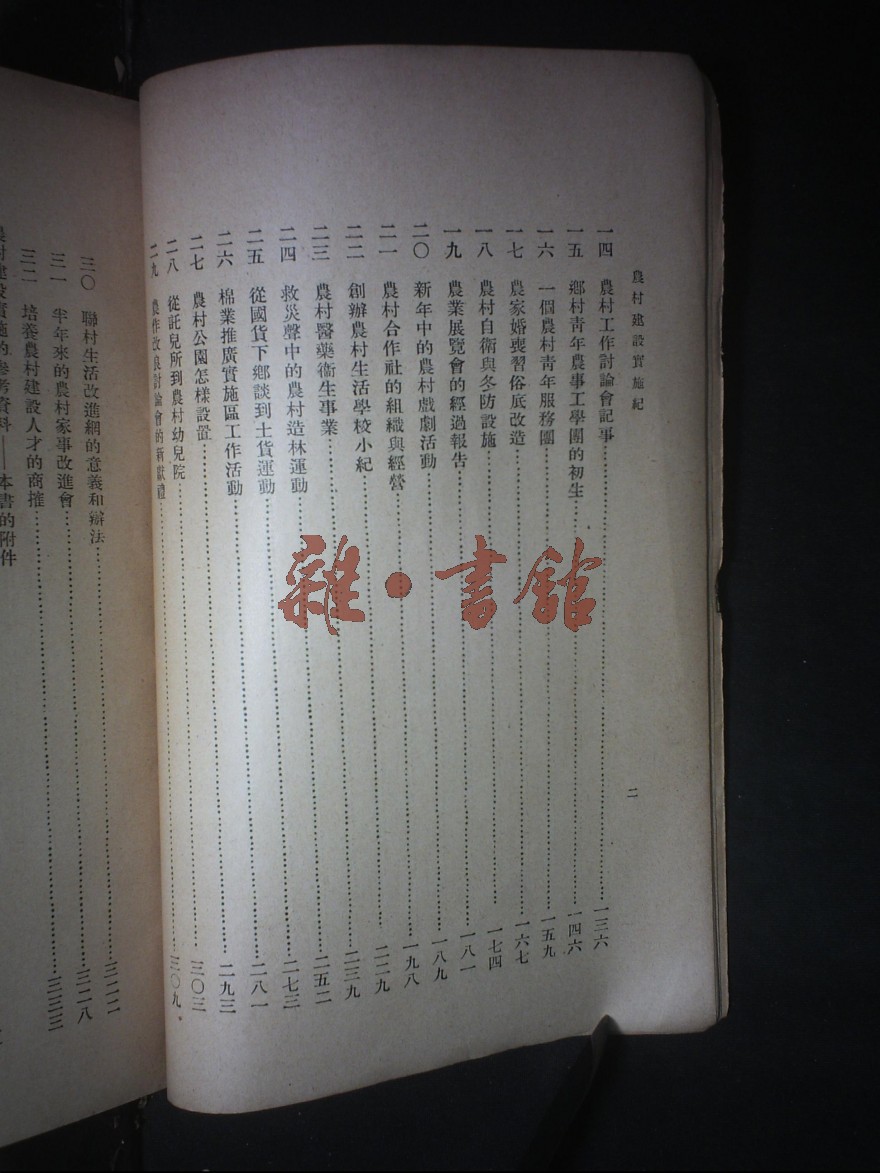 農村建設實施紀
二
一四 農村工作討論會記事……一三六
一五 鄉村靑年農事工學團的初生……一四六
一六 一個農村靑年服務團……一五九
一七 農家婚喪習俗底改造……一六七
一八 農村自衞與冬防設施……一七四
一九 農業展覽會的經過報告……一八一
二〇 新年中的農村戲劇活動……一八九
二一 農村合作社的組織與經營……一九八
二二 創辦農村生活學校小紀……二二九
二三 農村醫藥衞生事業……二三九
二四 救災聲中的農村造林運動……二五二
二五 從國貨下鄉談到土貨運動……二七三
二六 棉業推廣實施區工作活動……二八一
二七 農村公園怎樣設置……二九三
二八 從託兒所到農村幼兒院……三〇三
二九 農作改良討論會的新獻禮……三〇九
三〇 聯村生活改進網的意義和辦法……三二二
三一 半年來的農村家事改進會……三二八
三二 培養農村建設人才的商搉……三三三
農村建設實施的參考資料——本書的附件
雜·書館